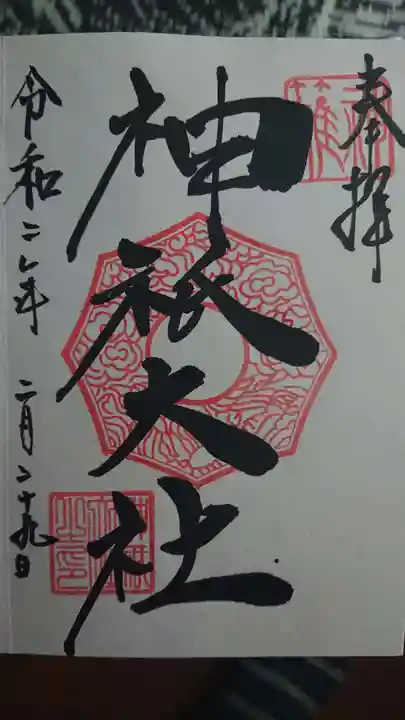 奉拝
神祇大社
令和二年 二月二十九日